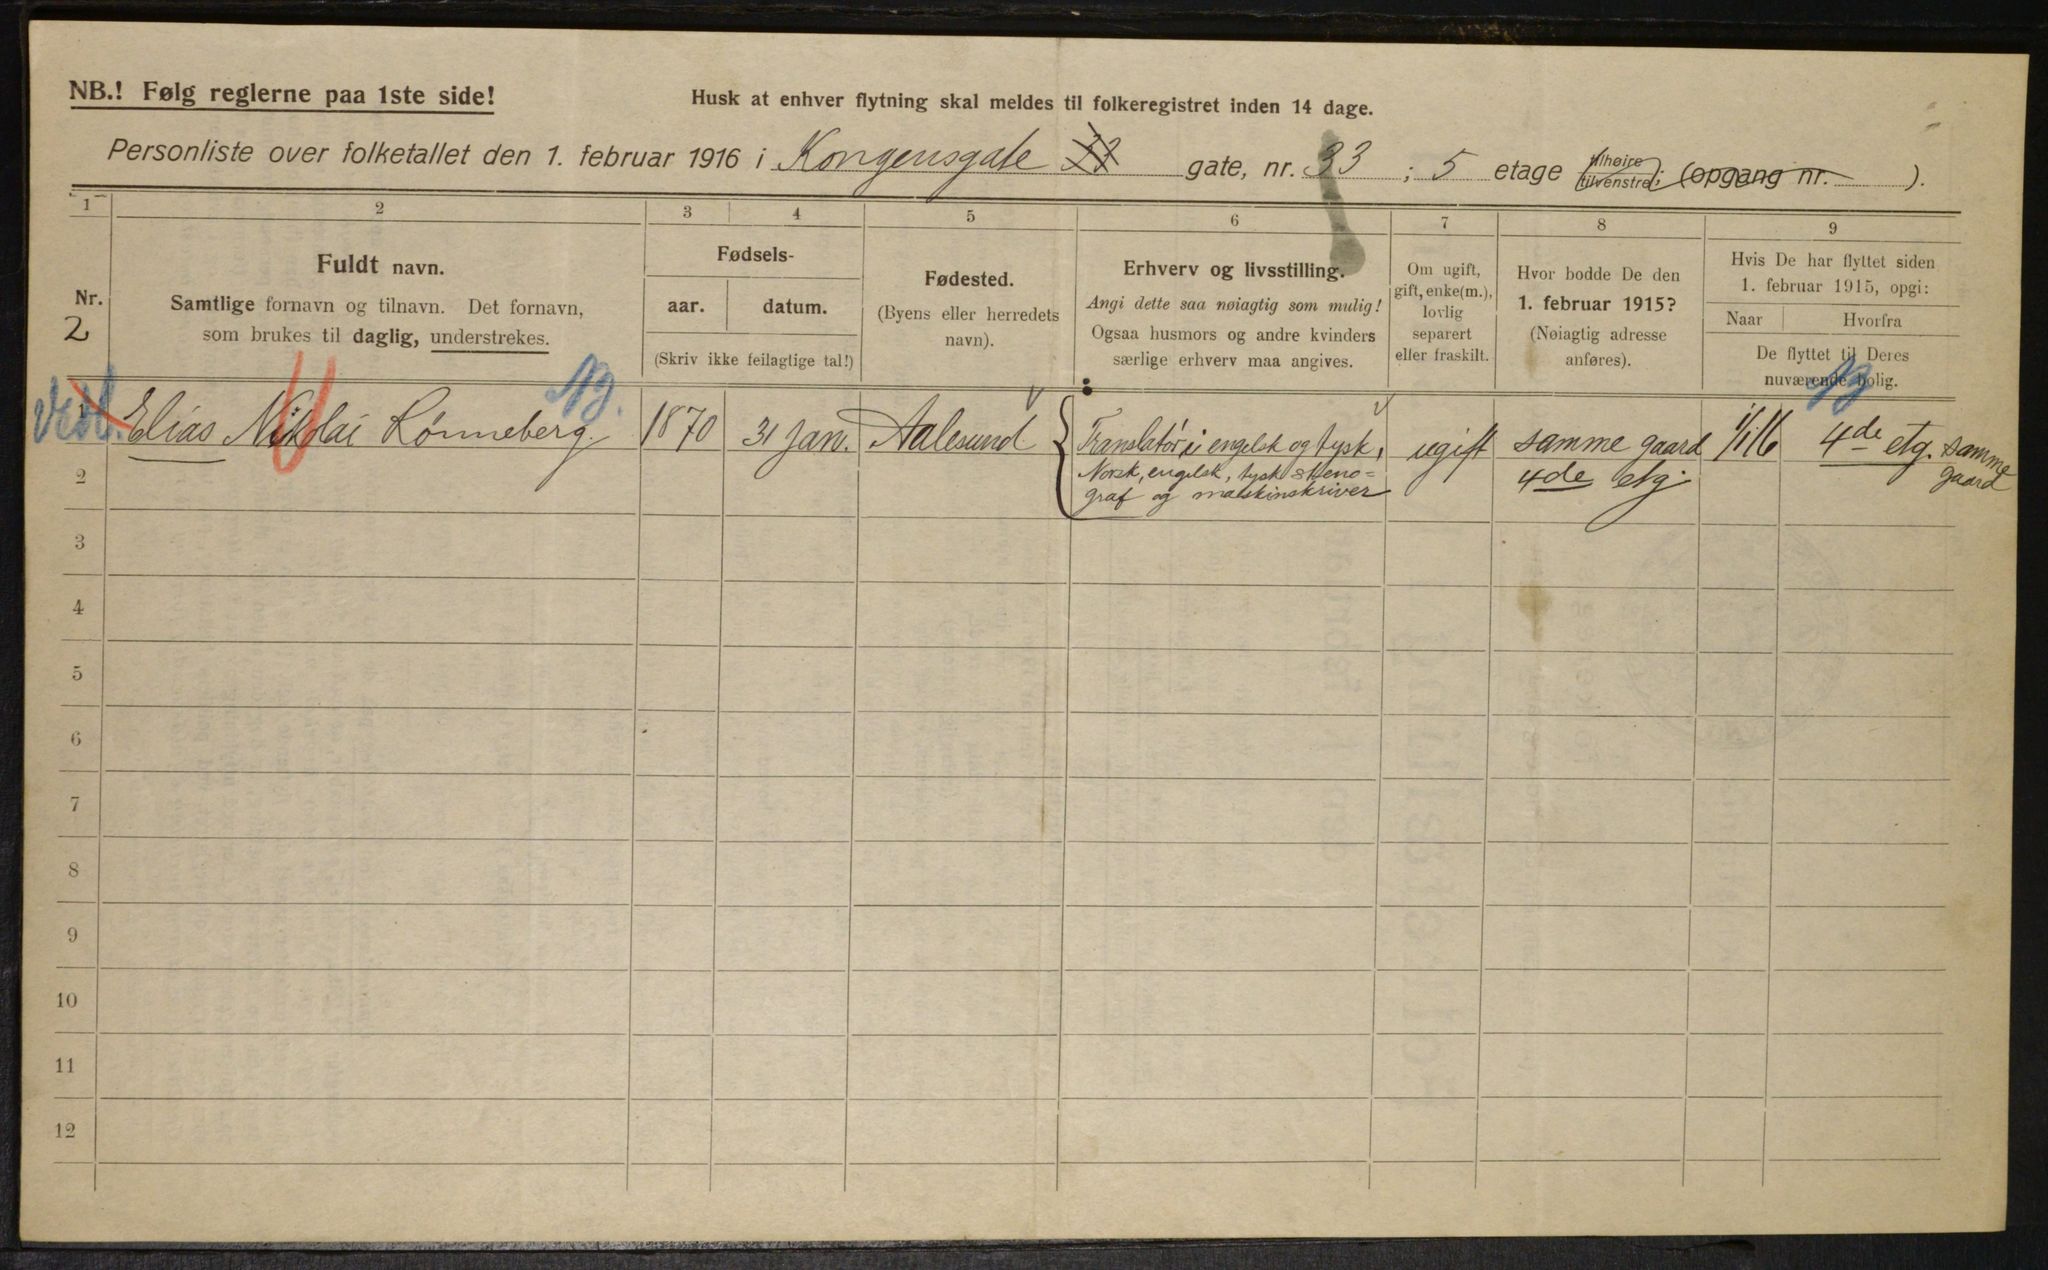 NB.! Følg reglerne paa 1ste side!
Husk at enhver flytning skal meldes til folkeregistret inden 14 dage.
Personliste over folketallet den 1. februar 1916 i Kongensgate 33 gate, nr. 33 ; 5 etage (tilhøire tilvenstre); (opgang nr. ).
1 2 3 4 5 6 7 8 9
Nr.
2
Fuldt navn.
Samtlige fornavn og tilnavn. Det fornavn,
som brukes til daglig, understrekes.
Fødsels-
aar. datum.
(Skriv ikke feilagtige tal!)
Fødested.
(Byens eller herredets
navn).
Erhverv og livsstilling.
Angi dette saa nøiagtig som mulig!
Ogsaa husmors og andre kvinders
særlige erhverv maa angives.
Om ugift,
gift, enke(m.),
lovlig
separert
eller fraskilt.
Hvor bodde De den
1. februar 1915?
(Nøiagtig adresse
anføres).
Hvis De har flyttet siden
1. februar 1915, opgi:
Naar Hvorfra
De flyttet til Deres
nuværende bolig.
1 Elias Nikolai Rønneberg. NB. 1870 31 jan. Aalesund Translatør i engelsk og tysk, ugift samme gaard 1/1 16 NB 4de etg. samme
2 Norsk, engelsk, tysk steno- 4de etg. gaard
graf og maskinskriver
3
4
5
6
7
8
9
10
11
12